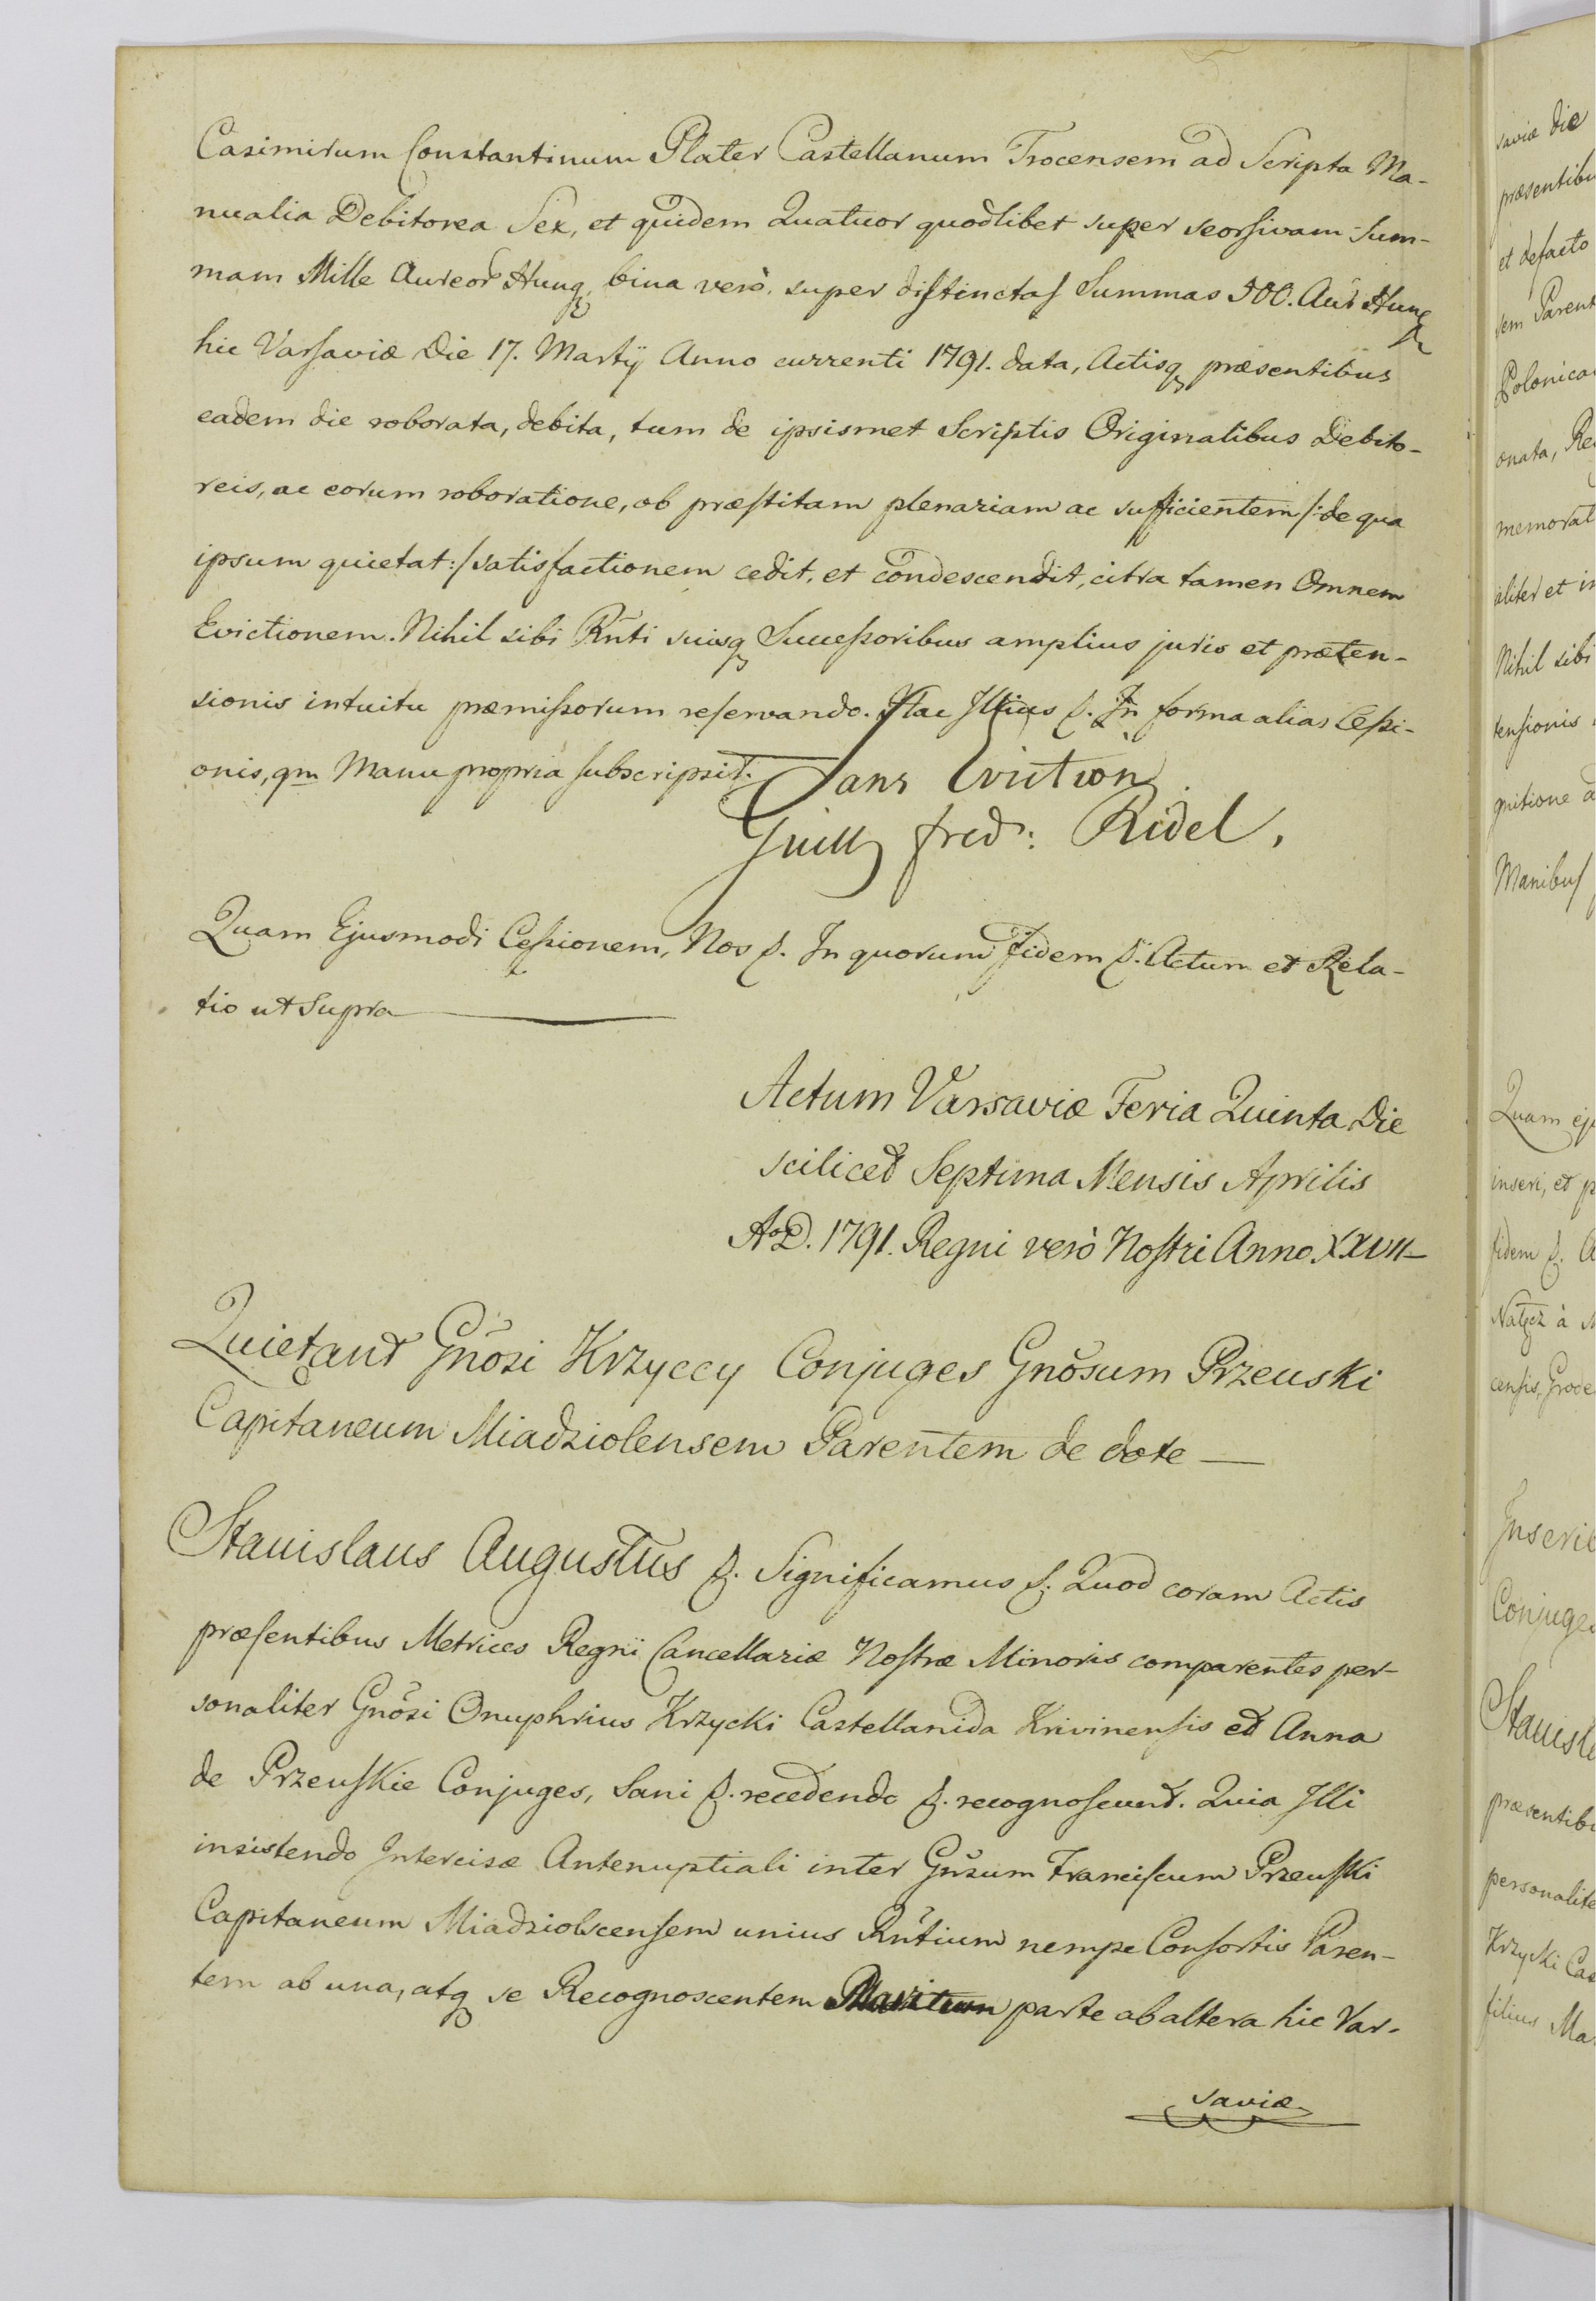 Casimirum Constantinum Plater Castellanum Trocensem ad Scripta Ma-
nualia Debitorea Sex, et quidem Quatuor quodlibet super seorsivam Sum-
mam Mille Aureor Hung, bina verò super distinctas Summas 500. Aur Hung
hic Varsaviæ Die 17. Martij Anno currenti 1791. data, Actisq præsentibus
eadem die roborata, debita, tum de ipsismet Scriptis Originalibus Debito-
reis, ac eorum roboratione, ob præstitam plenariam ac sufficientem /:de qua
ipsum quietat:/ satisfactionem cedit, et condescendit, citra tamen Omnem
Evictionem. Nihil sibi Rñti suisq Successoribus amplius juris et præten-
sionis intuitu præmissorum reservando. Hac Illius p. In forma alias Cessi-
onis, qm Manu propria subscripsit. Sans Eviction
Guill fred: Ridel,
Quam Ejusmodi Cessionem, Nos p. In quorum Fidem p. Actum et Rela-
tio ut Supra
Actum Varsaviæ Feria Quinta Die
scilicet Septima Mensis Aprilis
AoD. 1791. Regni verò Nostri Anno XXVII
Quietant Gñosi Krzyccy Conjuges Gñosum Przeuski
Capitaneum Miadziolensem Parentem de dote
Stanislaus Augustus p. Significamus p. Quod coram Actis
præsentibus Metrices Regni Cancellariæ Nostræ Minoris comparentes per-
sonaliter Gñosi Onuphrius Krzycki Castellanida Krivinensis et Anna
de Przeuskie Conjuges, Sani p. recedendo p. recognoscunt. Quia Illi
insistendo Intercisæ Antenuptiali inter Gñsum Franciscum Przeuski
Capitaneum Miadziolscensem unius Rñtium nempe Consortis Paren-
tem ab una, atq se Recognoscentem Maritum parte ab altera hic Var-
saviæ
saviæ die
præsentibu
et defacto
sem Parent
Polonica
onata, Re
memorat
aliter et in
Nihil sibi
tensionis
gnitione a
Manibus
Quam ej
inseri, et p
fidem p. A
censis, Grode
Conjuge
Stanisl
præsentib
personalite
Krzycki Cas
filius Ma